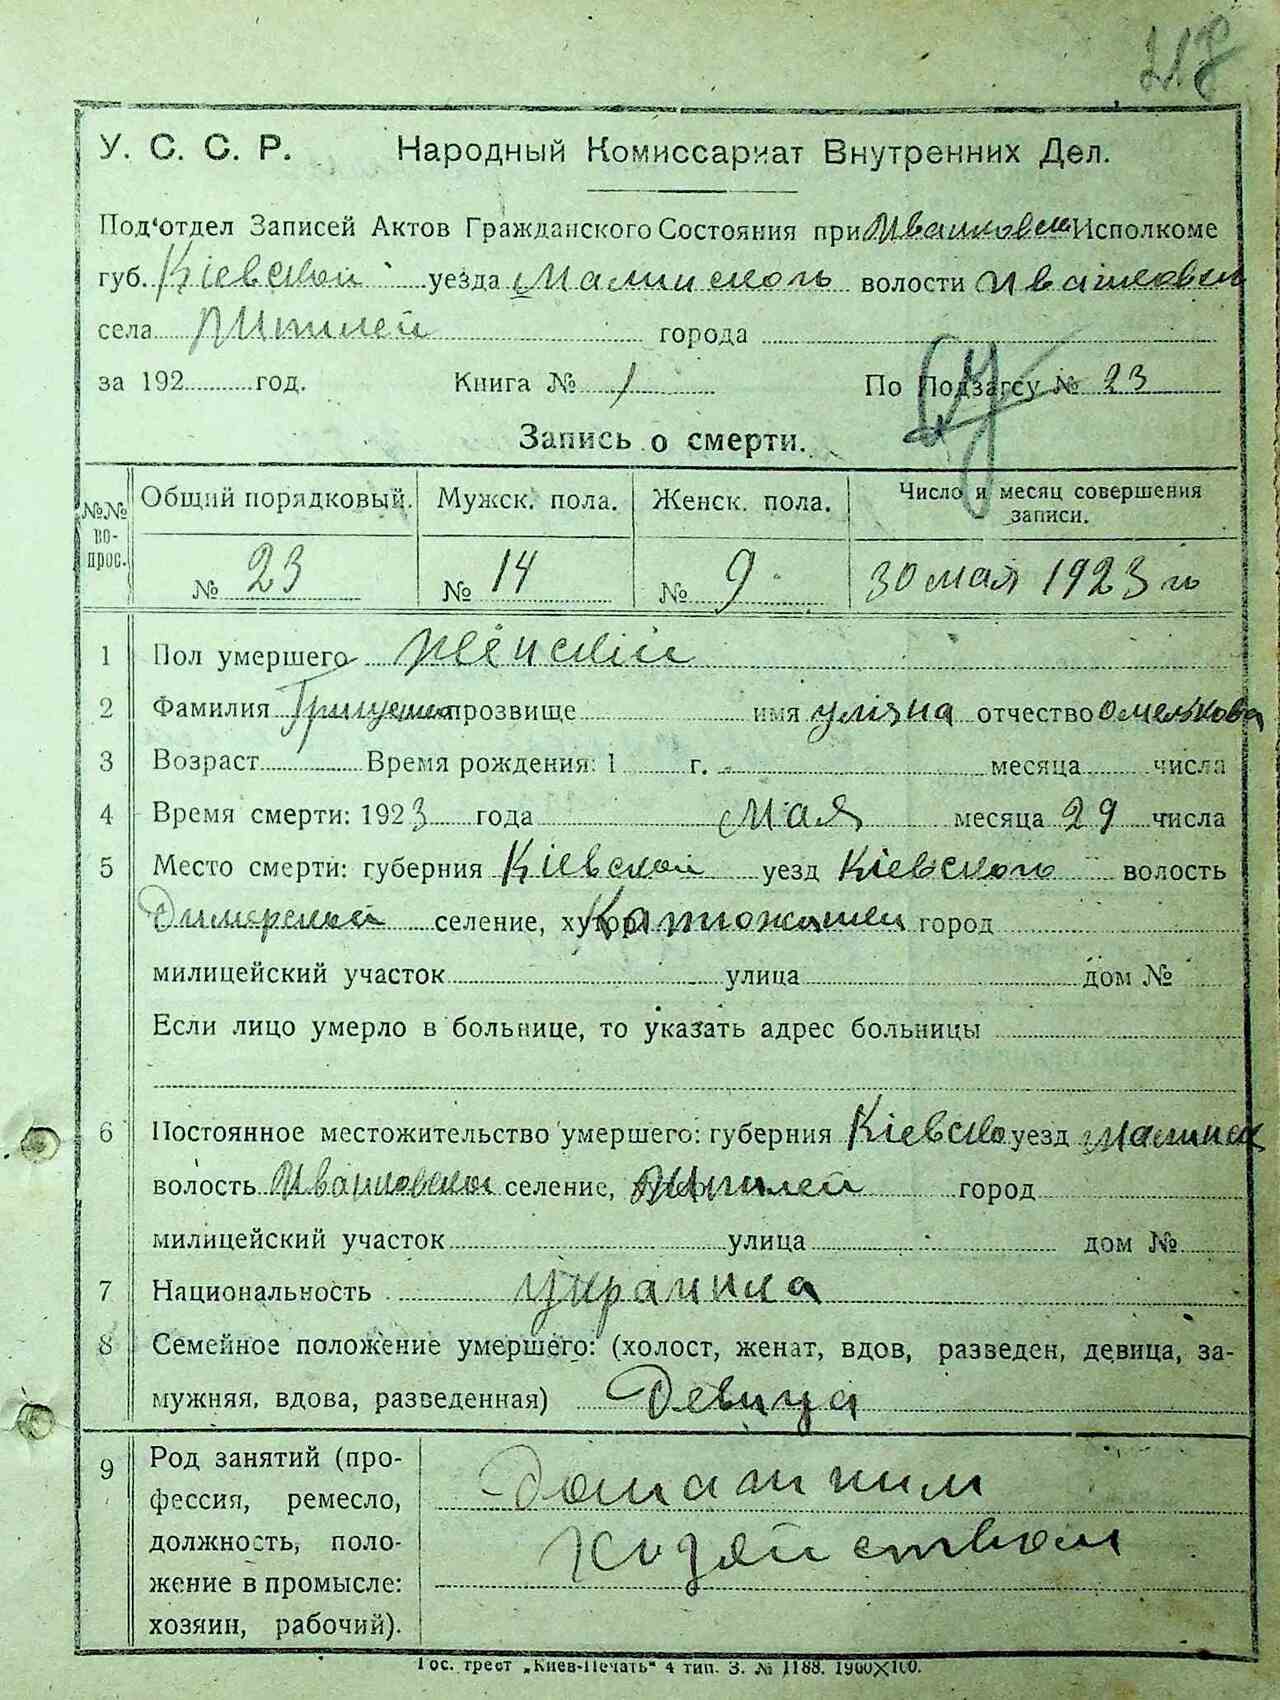 218
У. С. С. Р. Народный Комиссариат Внутренних Дел.
Под'отдел Записей Актов Гражданского Состояния при Исполкоме
губ. Кіевской уезда волости
села города
за 192 год. Книга № 1 По Подзагсу № 23
Запись о смерти.
№№ вопрос. Общий порядковый. Мужск. пола. Женск. пола. Число и месяц совершения записи.
№ 23 № 14 № 9 30 мая 1923 го
1 Пол умершего женский
2 Фамилия прозвище имя уляна отчество омелькова
3 Возраст Время рождения: 1 г. месяца числа
4 Время смерти: 1923 года мая месяца 29 числа
5 Место смерти: губерния Кіевской уезд Кіевского волость
Димерской селение, хутор город
милицейский участок улица дом №
Если лицо умерло в больнице, то указать адрес больницы
6 Постоянное местожительство умершего: губерния Кіевско уезд
волость селение, город
милицейский участок улица дом №
7 Национальность
8 Семейное положение умершего: (холост, женат, вдов, разведен, девица, за-
мужняя, вдова, разведенная) Девица
9 Род занятий (про-
фессия, ремесло,
должность, поло-
жение в промысле:
хозяин, рабочий).
хозяйством
Гос. трест „Киев-Печать" 4 тип. З. № 1188. 1900×100.